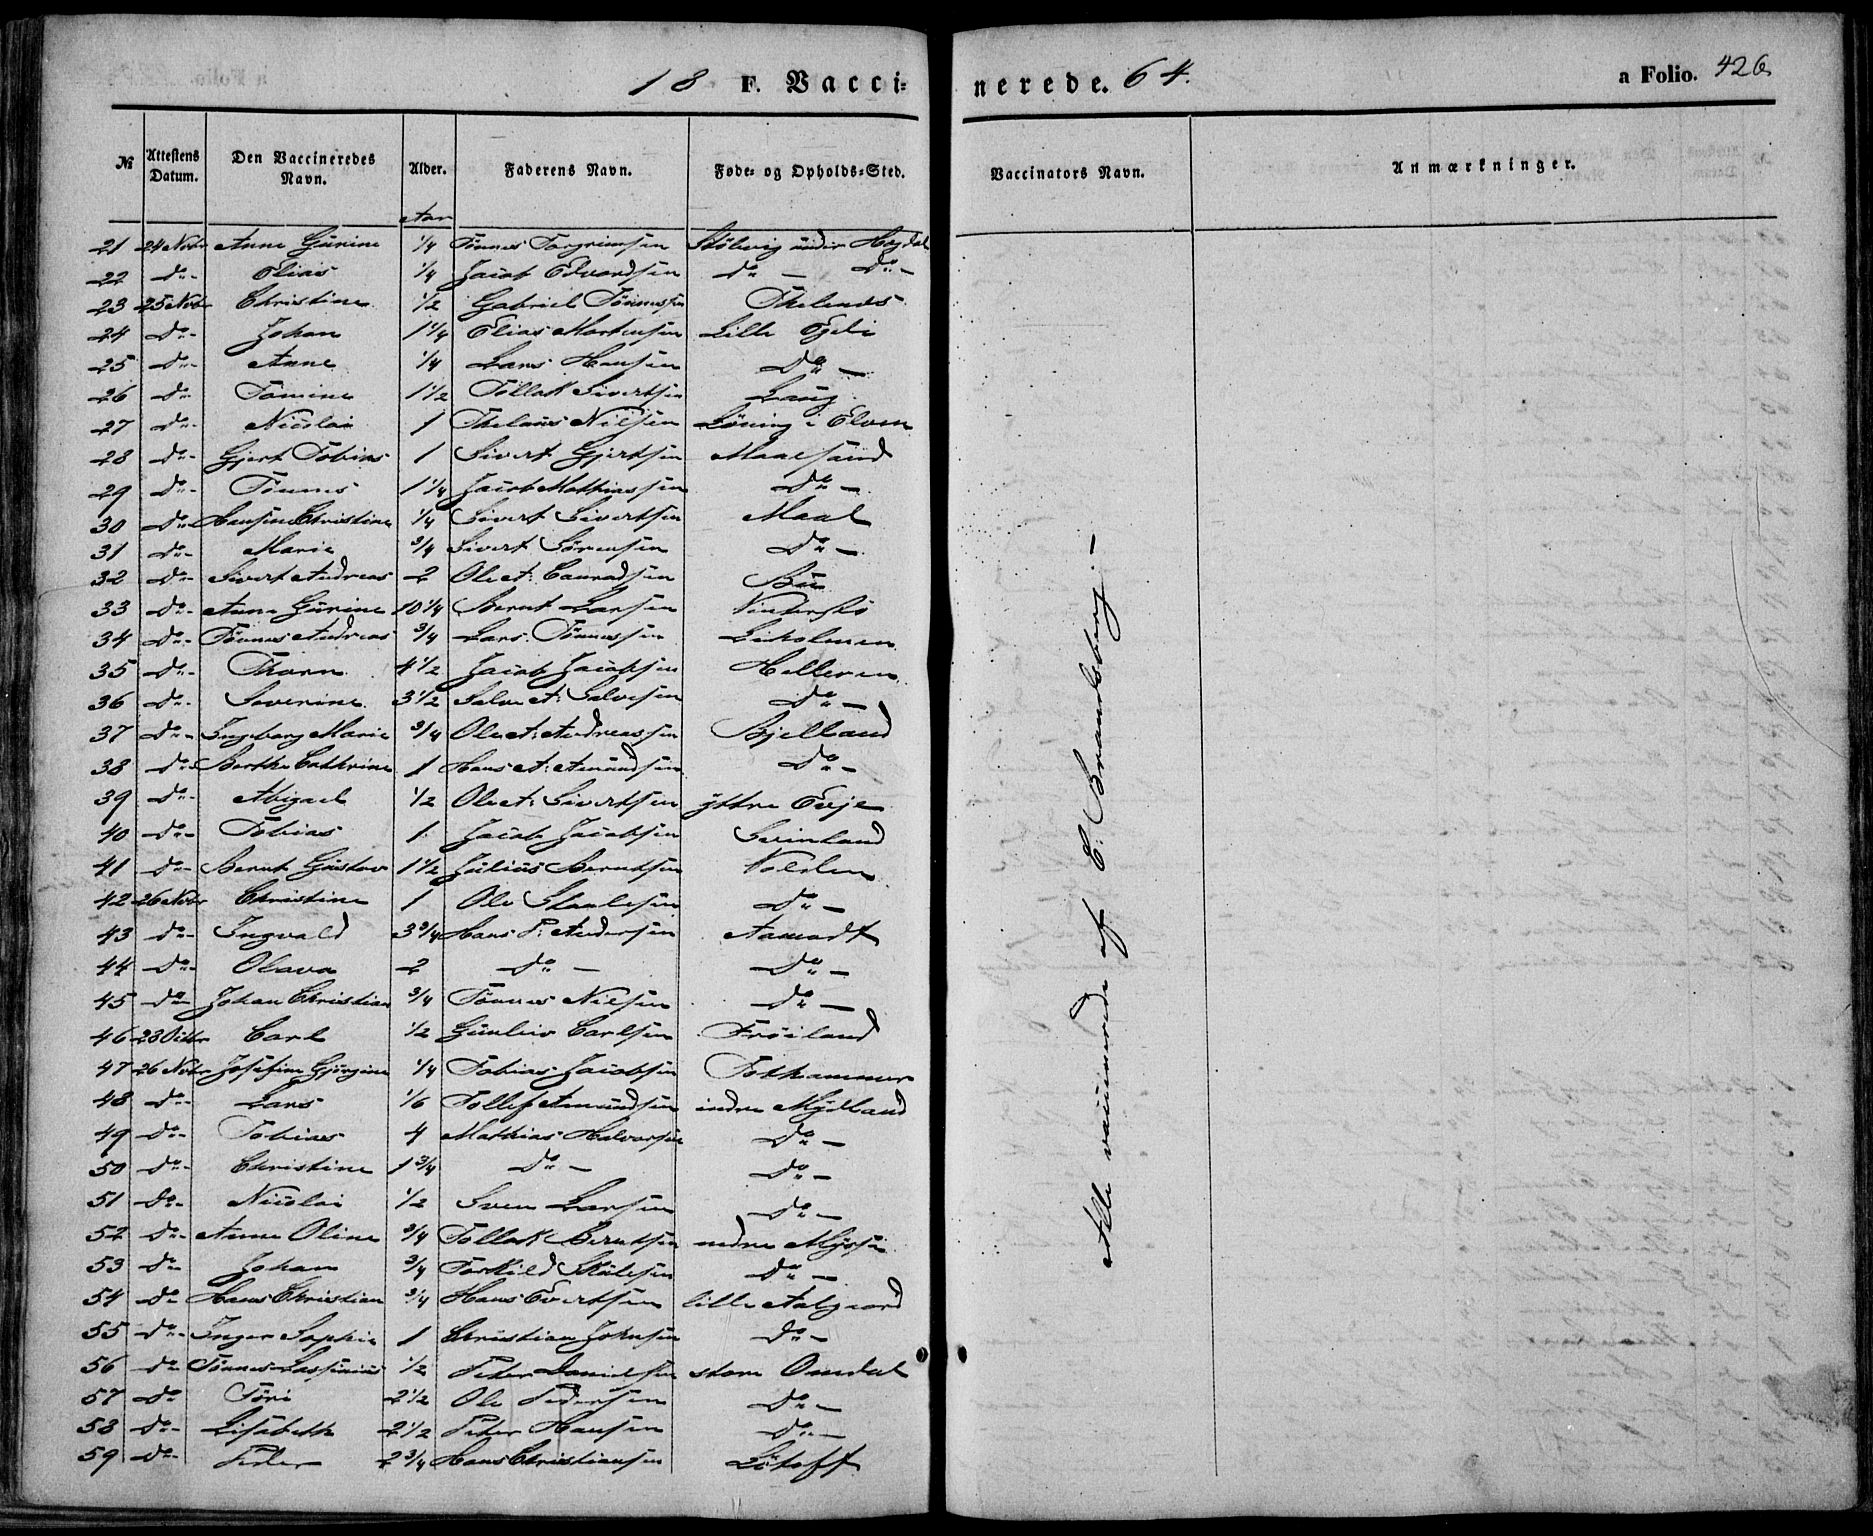 18 F. Vaccinerede. 64.
a Folio. 426
№ Attestens Datum. Den Vaccineredes Navn. Alder. Faderens Navn. Føde- og Opholds-Sted. Vaccinators Navn. Anmærkninger.
Aar
21 24 Novbr Anne Gurine 1/4 Tønnes Torgrimsen under
22 do- Elias 1/4 Jacob Edvardsen do - do -
23 25 Novbr Christine 1/2 Gabriel Tønnessen
24 do- Johan 1 1/4 Elias Martensen Lille
25 do- Anne 1/4 Lars Hansen do -
26 do- Tomine 1 1/2 Tollak Sivertsen Laug
27 do- Nicolai 1 Nilsen Løning i Elven
28 do- Gjert Tobias 1 Sivert Gjertsen Maalsund
29 do- Tønnes 1 1/4 Jacob Mathiassen do -
30 do- Hansine Christine 1/4 Sivert Sivertsen Maal
31 do- Marie 3/4 Sivert Sørensen do -
32 do- Sivert Andreas 2 Ole A: Conradsen Bu
33 do- Anne Gurine 10 1/4 Bernt Larsen
34 do- Tønnes Andreas 3/4 Lars Tønnessen
35 do- 4 1/2 Jacob Jacobsen Helleren
36 do- Severine 3 1/2 Salve A: Salvesen do -
37 do- Ingeborg Marie 3/4 Ole A: Andreassen Bjelland
38 do- Berthe Cathrine 1 Hans A: Amundsen do -
39 do- Abigael 1/2 Ole A: Sivertsen yttre Evje
40 do- Tobias 1 Jacob Jacobsen Svinland
41 do- Bernt Gustav 1 1/2 Julius Berntsen
42 26 Novbr Christine 1 Ole Staalesen do -
43 do- Ingvald 3 3/4 Hans P: Andersen Aamodt
44 do- Olava 2 do - do -
45 do- Johan Christian 3/4 Tønnes Nilsen do -
46 Carl 1/2 Gunleiv Carlsen Frøiland
47 26 Novbr Josefine Gjørgine 1/4 Tobias Jacobsen Fothammer
48 do- Lars 1/6 Tollef Amundsen indre Mydland
49 do- Tobias 4 Mathias Halvorsen do -
50 do- Christine 1 3/4 do - do -
51 do- Nicolai 1/2 Sven Larsen do -
52 do- Anne Oline 3/4 Tollak Berntsen
53 do- Johan 3/4 Torkild Skulesen do -
54 do- Hans Christian 3/4 Hans Evertsen lille Aalgaard
55 do- Inger Sophie 1 Christian Johnsen do -
56 do- Tønnes 1/2 Peter Danielsen store Omdal
57 do- Tøri 2 1/2 Ole Pedersen do -
58 do- Lisabeth 2 1/2 Peter Hansen do -
59 do- Peder 2 3/4 Hans Christiansen Litoff
Alle vaccinerede af C. Brandsberg. -